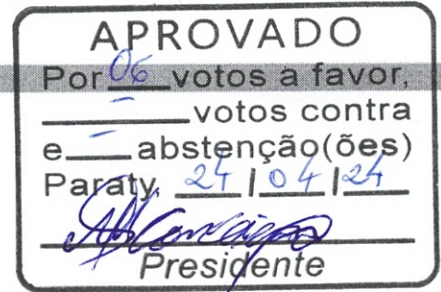 APROVADO
Por 06 votos a favor,
- votos contra
e - abstenção(ões)
Paraty, 24 / 04 / 24
Presidente